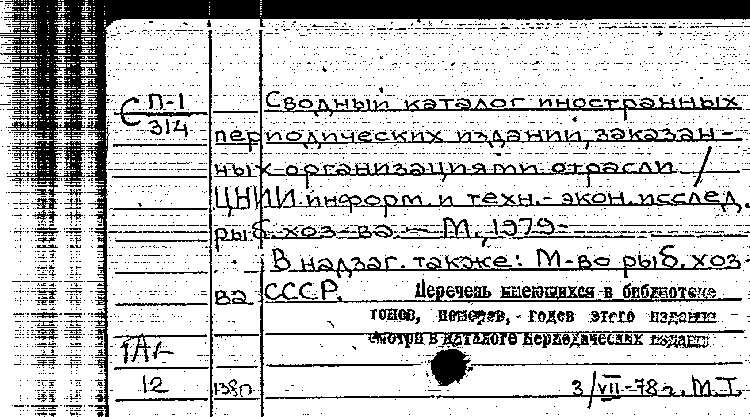 С П-1 Сводный каталог иностранных
314
периодических изданий, заказан-
ных организациями отрасли /
ЦНИИ информ. и техн.-экон. исслед.
рыб. хоз-ва. — М., 1979-
В надзаг. также: М-во рыб. хоз-
ва СССР. Перечень имеющихся в библиотеке
томов, номеров, годов этого издания
смотри в каталоге периодических изданий
12 138п 3/VII-78г. М.Т.